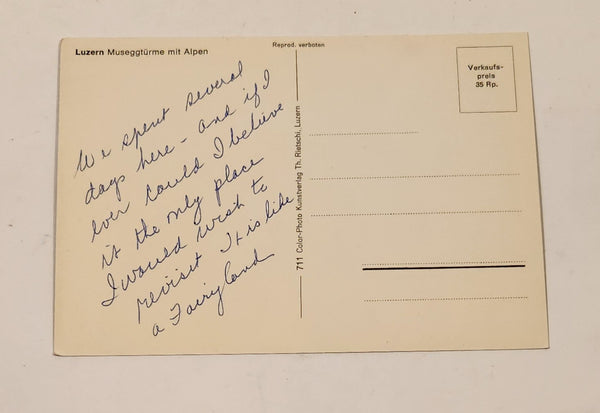 Luzern Museggtürme mit Alpen
Reprod. verboten
Verkaufs-
preis
35 Rp.
We spent several
days here - and if I
ever could I believe
it the only place
I would wish to
revisit It is like
a Fairyland
711 Color-Photo Kunstverlag Th. Rietschi, Luzern